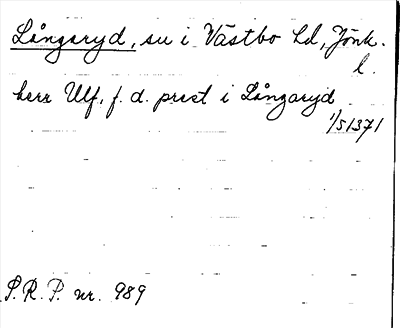 Långaryd, su i Västbo hd, Jönk.
l.
herr Ulf, f. d. prest i Långaryd
1/5 1371
S.R.P. nr. 989